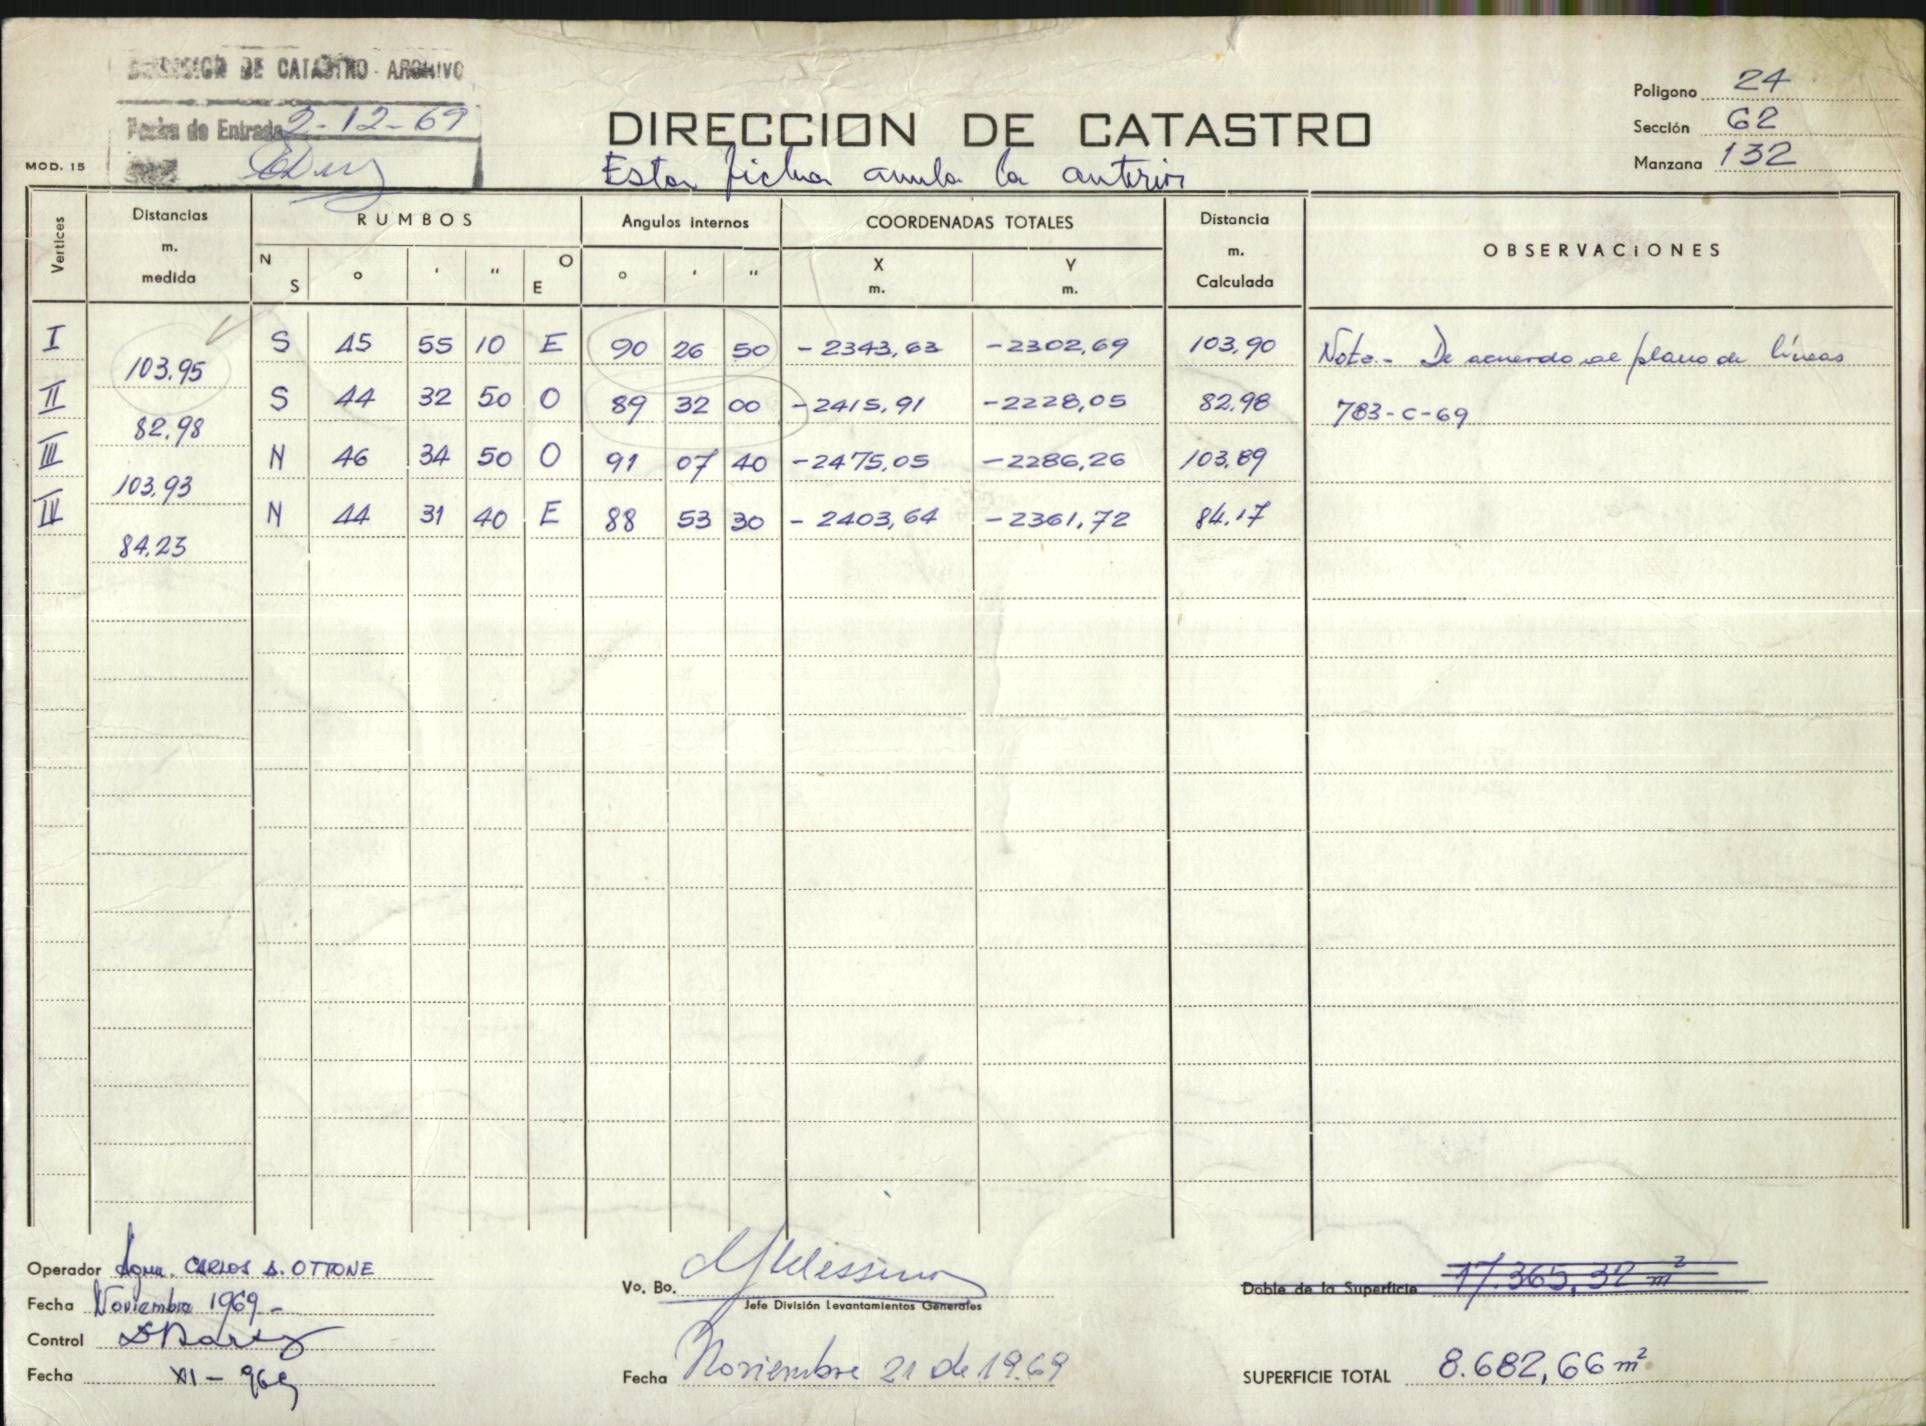 DIVISION DE CATASTRO - ARCHIVO
Fecha de Entrada 2-12-69
MOD. 15
DIRECCION DE CATASTRO
Esta ficha anula la anterior
Poligono 24
Sección 62
Manzana 132
Vertices Distancias m. medida RUMBOS Angulos internos COORDENADAS TOTALES Distancia m. Calculada OBSERVACIONES
N S ° ' " O E ° ' " X m. Y m.
I S 45 55 10 E 90 26 50 -2343,63 -2302,69 103,90 Nota.- De acuerdo al plano de líneas
103.95
II S 44 32 50 O 89 32 00 -2415,91 -2228,05 82,98 783-C-69
82.98
III N 46 34 50 O 91 07 40 -2475,05 -2286,26 103,89
103.93
IV N 44 31 40 E 88 53 30 -2403,64 -2361,72 84,17
84.23
Operador Agrim. CARLOS A. OTTONE
Fecha Noviembre 1969-
Control
Fecha XI-969
Vo. Bo.
Jefe División Levantamientos Generales
Fecha Noviembre 21 de 1969
Doble de la Superficie 17.365,32 m²
SUPERFICIE TOTAL 8.682,66 m²